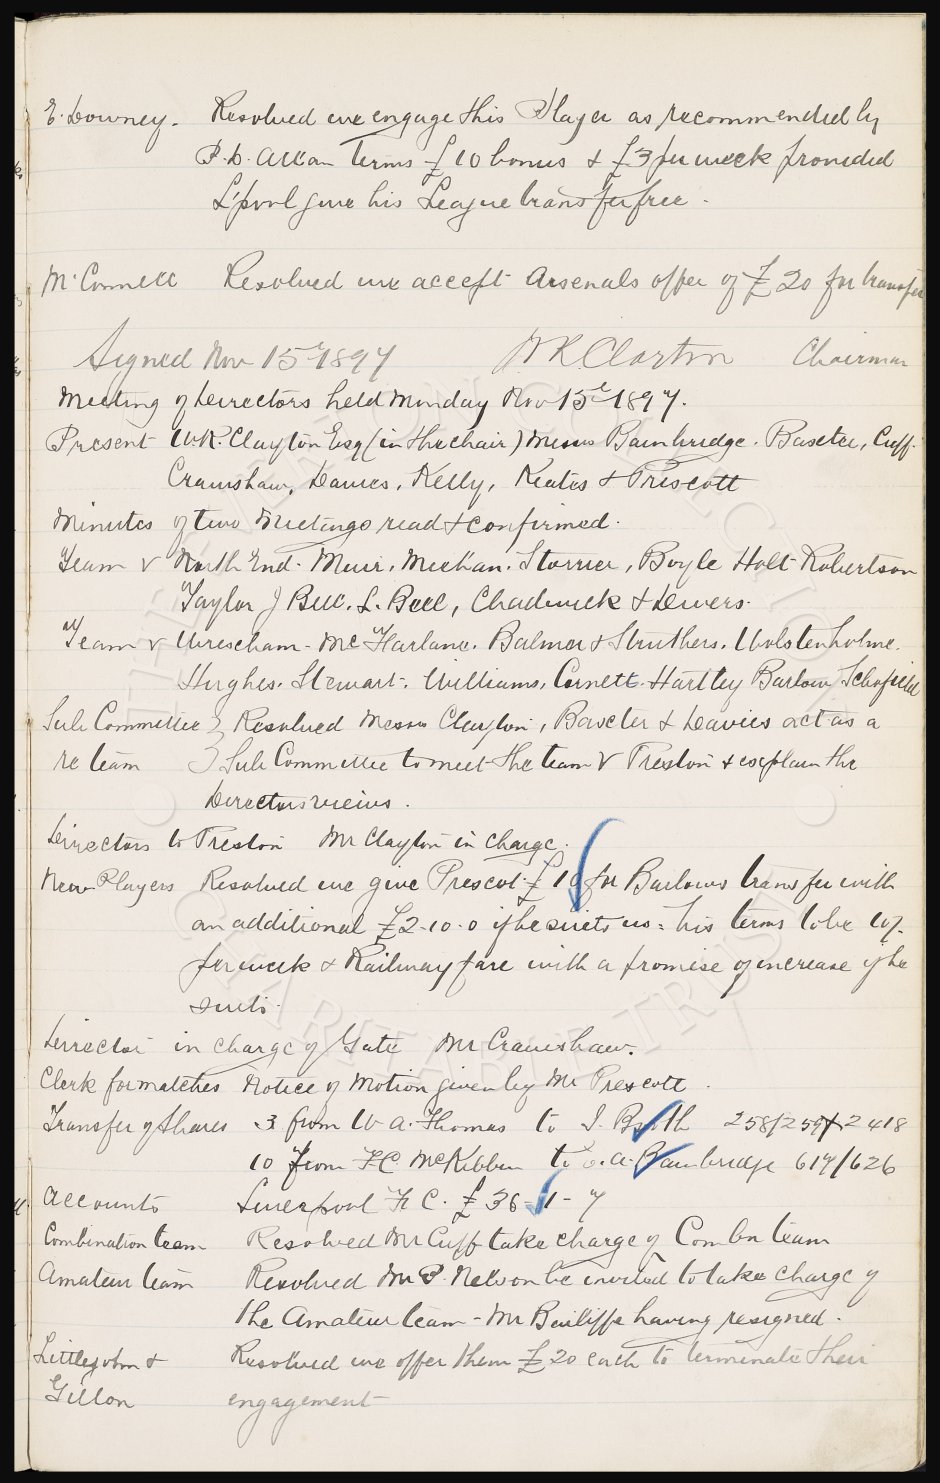 E. Downey. Resolved we engage this Player as recommended by
P. D. Allan Terms £10 bonus & £3 per week provided
L'pool give his League transfer free.
McConnell Resolved we accept Arsenals offer of £20 for transfer
Signed Nov 15th 1897 W.R. Clayton Chairman
Meeting of Directors held Monday Nov 15th 1897.
Present W.R. Clayton Esq (in the chair) Messrs Bainbridge. Baxter, Cuff.
Crawshaw, Davies, Kelly, Keates & Prescott
Minutes of two Meetings read & confirmed.
Team v North End. Muir, Meehan. Storrier, Boyle Holt Robertson
Taylor J Bell. L. Bell, Chadwick & Divers.
Team v Wrexham - McFarlane. Balmer & Struthers. Wolstenholme.
Hughes. Stewart. Williams. Cornett. Hartley Barlow Schofield
Sub Committee } Resolved Messrs Clayton, Baxter & Davies act as a
re team } Sub Committee to meet the team v Preston & explain the
Directors views.
Directors to Preston Mr Clayton in charge.
New Players Resolved we give Prescot £10 for Barlows transfer with
an additional £2-10-0 if he suits us: his terms to be 10/-
per week & Railway fare with a promise of increase if he
suits.
Director in charge of Gate Mr Crawshaw.
Clerk for matches Notice of Motion given by Mr Prescott.
Transfer of Shares 3 from W. A. Thomas to J. 258/259 & 2418
10 from F.C. McKibbin to Bainbridge 617/626
Accounts Liverpool F. C. £36-1-7
Combination team Resolved Mr Cuff take charge of Combn team
Amateur team Resolved Mr Nelson be invited to take charge of
the Amateur team - Mr Bailiffe having resigned.
Littlejohn & Resolved we offer them £20 each to terminate their
Gillon engagement
THE EVERTON COLLECTION
CHARITABLE TRUST